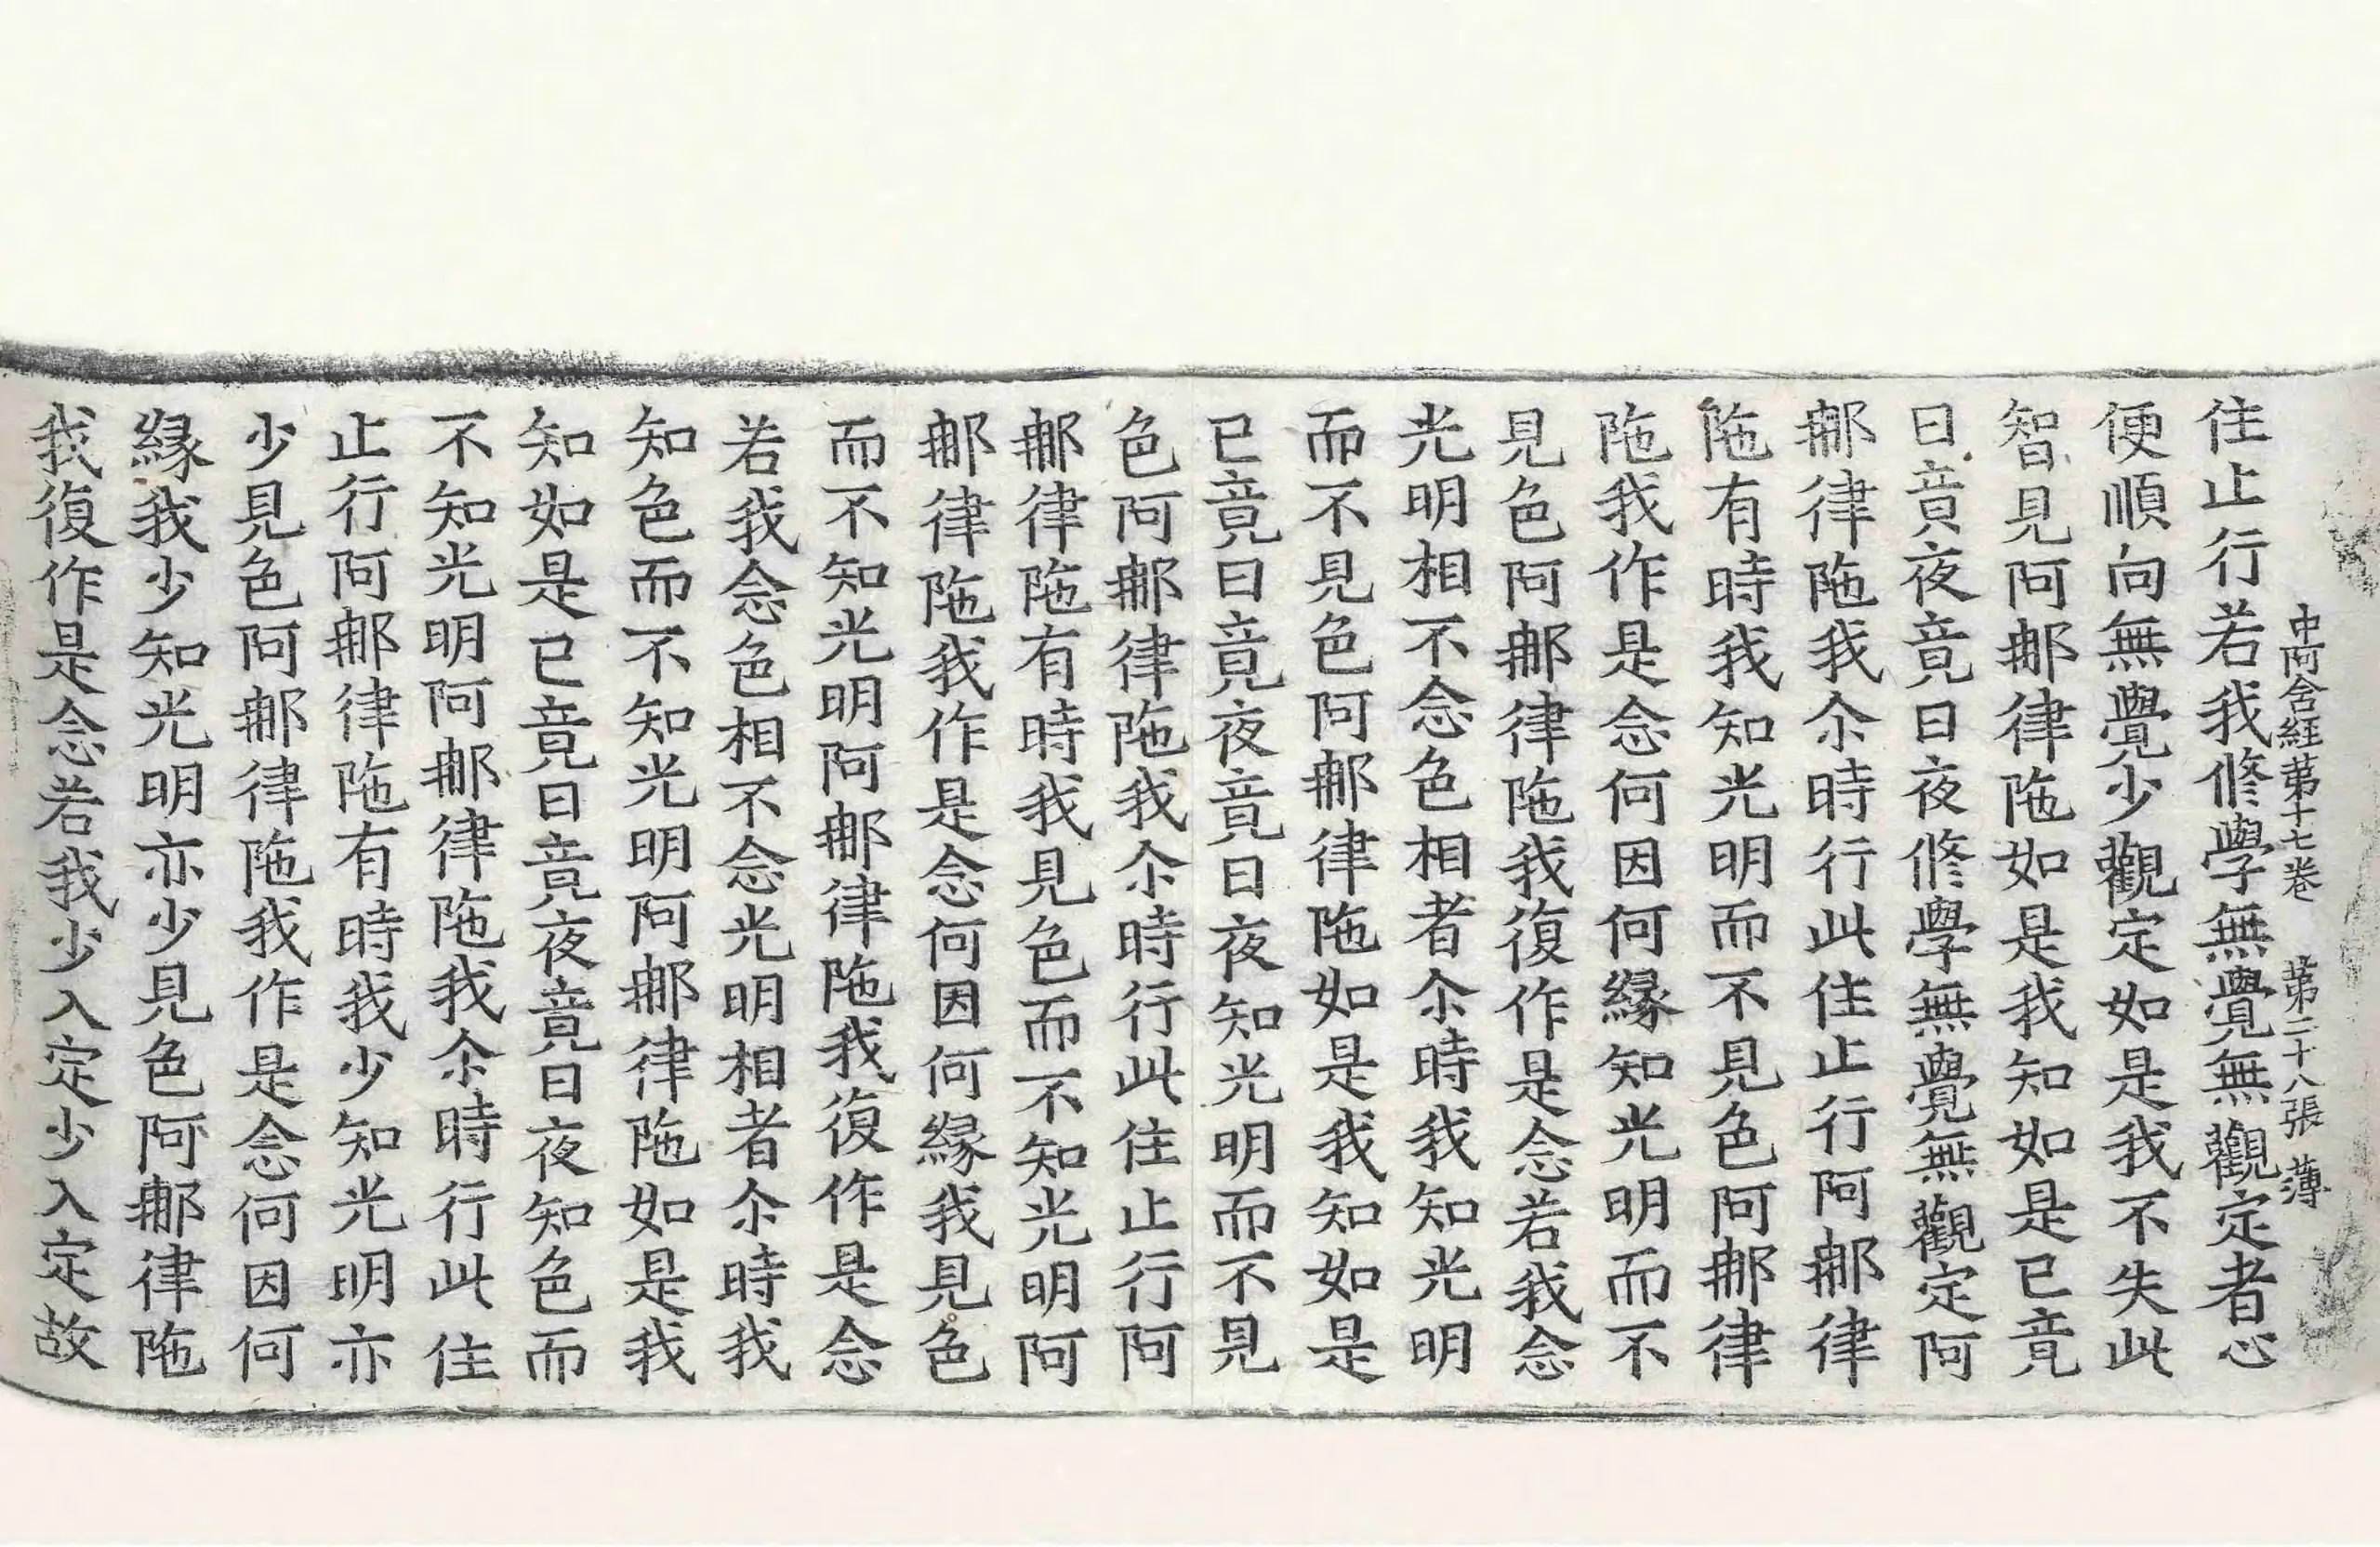 中阿含経苐十七卷 苐二十八張 薄
住止行若我修學無覺無觀定者心
便順向無覺少觀定如是我不失此
智見阿那律陁如是我知如是已竟
日竟夜竟日夜修學無覺無觀定阿
那律陁我尒時行此住止行阿那律
陁有時我知光明而不見色阿那律
陁我作是念何因何縁知光明而不
見色阿那律陁我復作是念若我念
光明相不念色相者尒時我知光明
而不見色阿那律陁如是我知如是
已竟日竟夜竟日夜知光明而不見
色阿那律陁我尒時行此住止行阿
那律陁有時我見色而不知光明阿
那律陁我作是念何因何縁我見色
而不知光明阿那律陁我復作是念
若我念色相不念光明相者尒時我
知色而不知光明阿那律陁如是我
知如是已竟日竟夜竟日夜知色而
不知光明阿那律陁我尒時行此住
止行阿那律陁有時我少知光明亦
少見色阿那律陁我作是念何因何
縁我少知光明亦少見色阿那律陁
我復作是念若我少入定少入定故